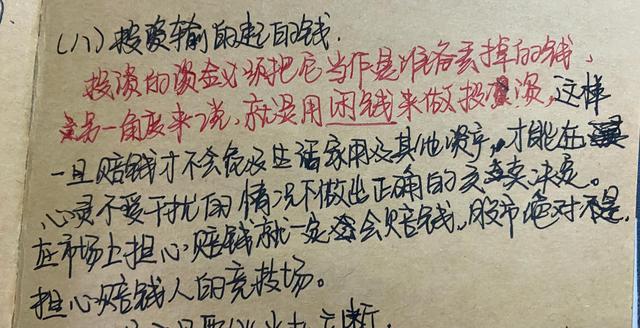 (八)投资输的起的钱.
投资的资金必须把它当作是准备丢掉的钱、
另一角度来说,就是用闲钱来做投资,这样
一旦赔钱才不会危及生活家用及其他资产,才能在
心灵不受干扰的情况下做出正确的买卖决定。
在市场上担心赔钱就一定会赔钱。股市绝对不是
担心赔钱人的竞技场。